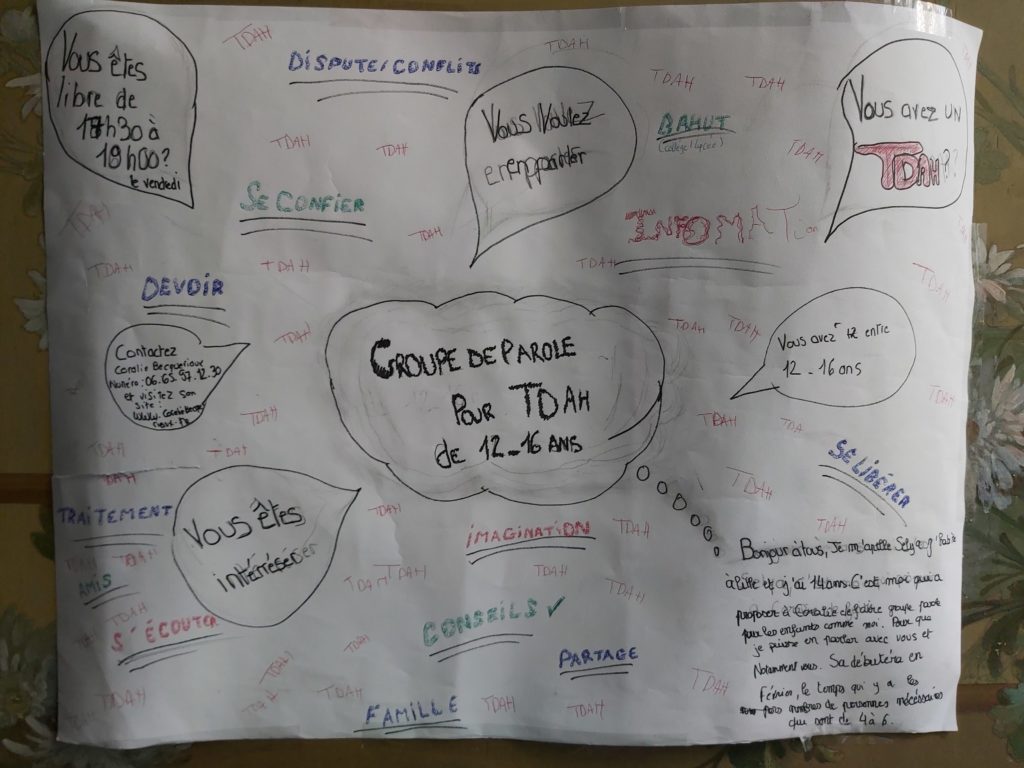 Vous êtes
libre de
17h30 à
19h00?
le vendredi
TDAH
DISPUTE/CONFLITS
TDAH
Vous voulez
en
TDAH
TDAH
BAHUT
(collège/lycée)
Vous avez un
TDAH??
TDAH
TDAH
TDAH
SE CONFIER
TDAH
INFOMATion
TDAH
TDAH
TDAH
TDAH
TDAH
DEVOIR
Contactez
Coralie
Numéro: 06.65.57.12.30
et visitez son
site:
TDAH
GROUPE DE PAROLE
POUR TDAH
de 12-16 ANS
TDAH
TDAH
Vous avez entre
12-16 ans
TDAH
TDAH
TDAH
TDAH
TDA
TDAH
TDAH
SE LIBÉRER
TDAH
TRAITEMENT
Vous êtes
intérréser
TDAH
IMAGINATION
TDAH
TDAH
AMIS
TDAH
S'ÉCOUTER
TDAH
TDAH
TDAH
TDAH
CONSEILS ✓
TDAH
PARTAGE
TDAH
TDAH
TDAH
FAMILLE
TDAH
TDAH
TDAH
Bonjour à tous, Je m'apelle j'habite
à Lille et j'ai 14 ans. C'est moi qui a
proposer à Coralie de faire groupe parole
pour les enfants comme moi. Pour que
je puisse en parler avec vous et
Notamment vous. Sa débutera en
Février, le temps qu'il y a les
nombres de personnes nécéssaires
qui sont de 4 à 6.